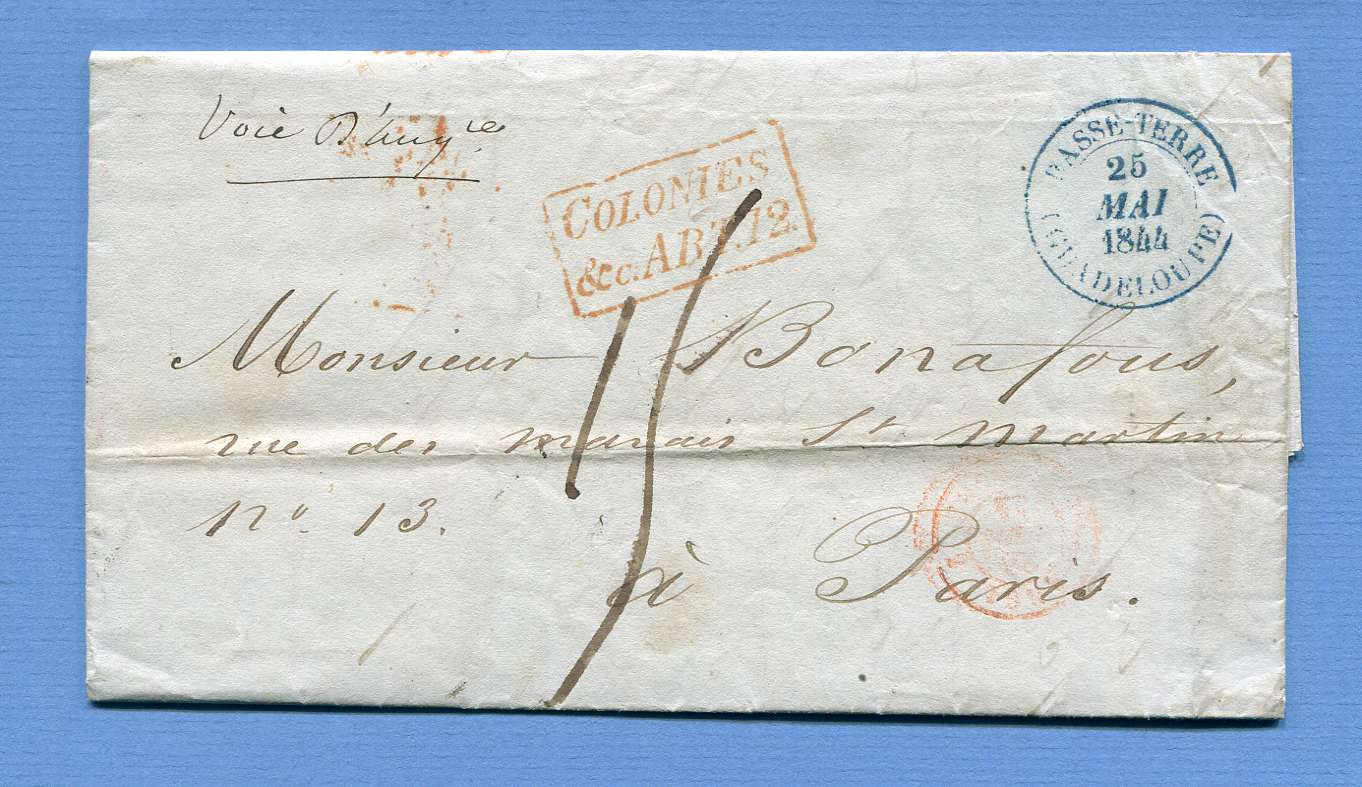 Voie D'angre
COLONIES
&c. ART. 12.
BASSE-TERRE
25
MAI
1844
(GUADELOUPE)
15
Monsieur Bonafous,
rue des marais St Martin
no 13.
à Paris.